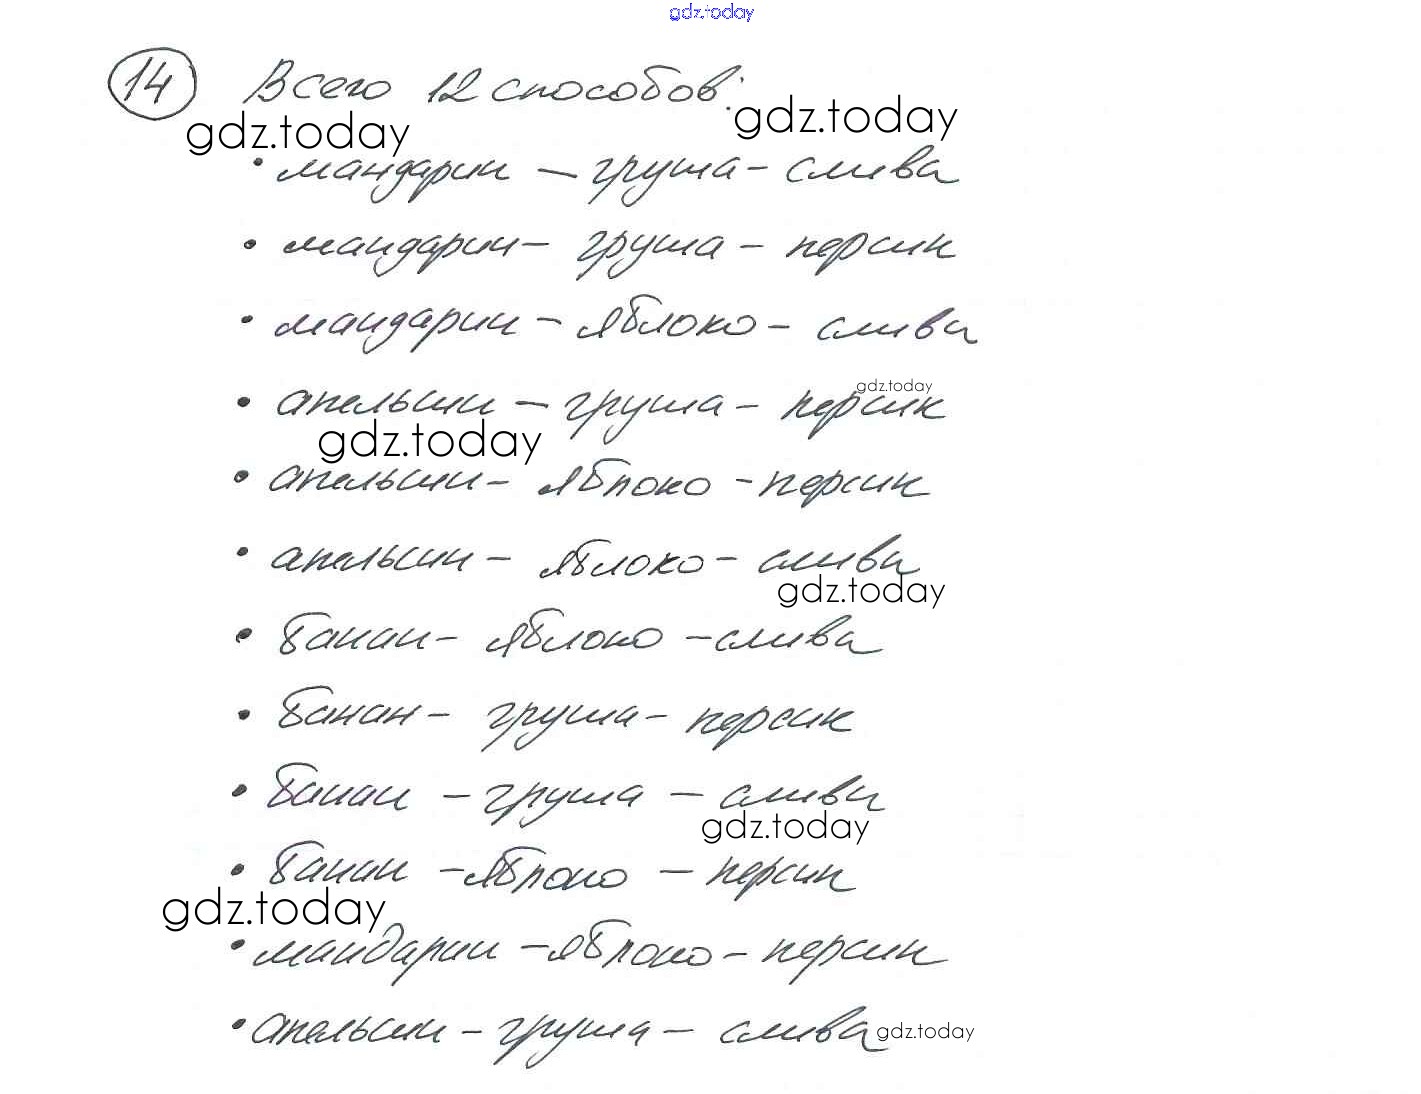 gdz.today
14 Всего 12 способов:
gdz.today gdz.today
• мандарин – груша – слива
• мандарин – груша – персик
• мандарин – яблоко – слива
gdz.today
• апельсин – груша – персик
gdz.today
• апельсин – яблоко – персик
• апельсин – яблоко – слива
gdz.today
• банан – яблоко – слива
• банан – груша – персик
• банан – груша – слива
gdz.today
• банан – яблоко – персик
gdz.today
• мандарин – яблоко – персик
• апельсин – груша – слива gdz.today